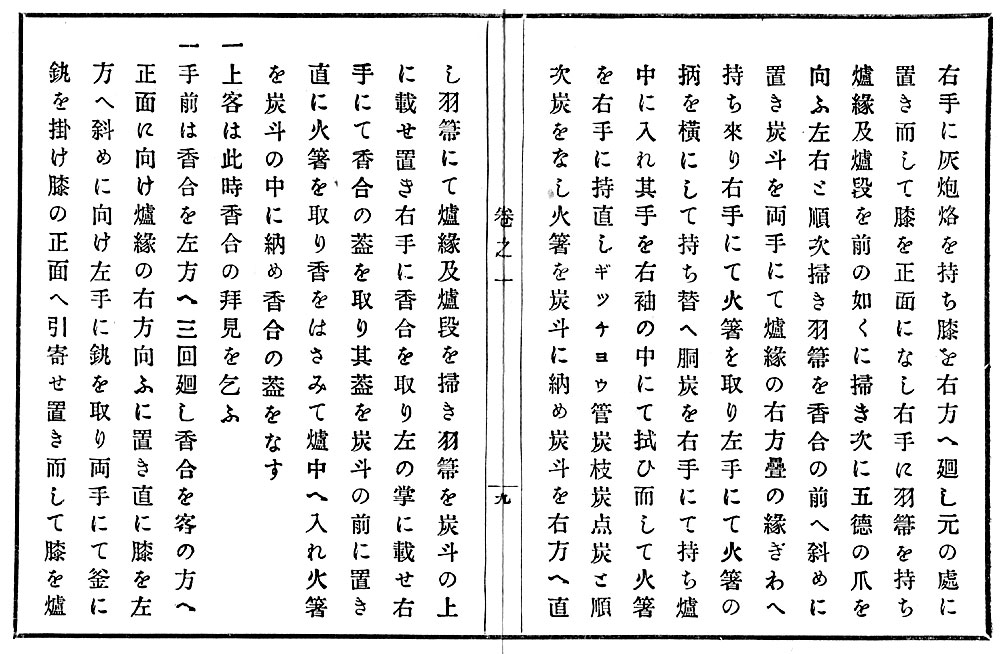 右手に灰炮烙を持ち膝を右方へ廻し元の處に
置き而して膝を正面になし右手に羽箒を持ち
爐縁及爐段を前の如くに掃き次に五德の爪を
向ふ左右と順次掃き羽箒を香合の前へ斜めに
置き炭斗を両手にて爐縁の右方疊の緣ぎわへ
持ち來り右手にて火箸を取り左手にて火箸の
柄を横にして持ち替へ胴炭を右手にて持ち爐
中に入れ其手を右袖の中にて拭ひ而して火箸
を右手に持直しギッチョウ管炭枝炭点炭と順
次炭をなし火箸を炭斗に納め炭斗を右方へ直
卷之一
九
し羽箒にて爐縁及爐段を掃き羽箒を炭斗の上
に載せ置き右手に香合を取り左の掌に載せ右
手にて香合の葢を取り其葢を炭斗の前に置き
直に火箸を取り香をはさみて爐中へ入れ火箸
を炭斗の中に納め香合の葢をなす
一上客は此時香合の拜見を乞ふ
一手前は香合を左方へ三回廻し香合を客の方へ
正面に向け爐縁の右方向ふに置き直に膝を左
方へ斜めに向け左手に釻を取り両手にて釜に
釻を掛け膝の正面へ引寄せ置き而して膝を爐